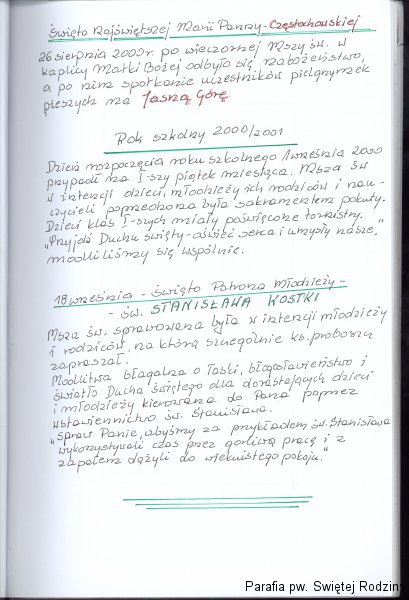 Święto Najświętszej Marii Panny-Częstochowskiej
26 sierpnia 2000r po wieczornej Mszy św. w
kaplicy Matki Bożej odbyło się nabożeństwo,
a po nim spotkanie uczestników pielgrzymek
pieszych na Jasną Górę
Rok szkolny 2000/2001
Dzień rozpoczęcia roku szkolnego 1 września 2000
przypadł na I-szy piątek miesiąca. Msza św
w intencji dzieci, młodzieży ich rodziców i nau-
czycieli poprzedzona była sakramentem pokuty.
Dzieci klas I-szych miały poświęcone tornistry.
"Przyjdź Duchu święty-oświeć serca i umysły nasze,"
modliliśmy się wspólnie.
18 września - święto Patrona Młodzieży -
- św. STANISŁAWA KOSTKI
Msza św. sprawowana była w intencji młodzieży
i rodziców, na którą szczególnie ks. proboszcz
zapraszał.
Modlitwa błagalna o łaski, błogosławieństwo i
światło Ducha Świętego dla dorastających dzieci
i młodzieży kierowana do Pana poprzez
wstawiennictwo św. Stanisława.
"Spraw Panie, abyśmy za przykładem św. Stanisława
wykorzystywali czas przez gorliwą pracę i z
zapałem dążyli do wiekuistego pokoju."
Parafia pw. Świętej Rodziny